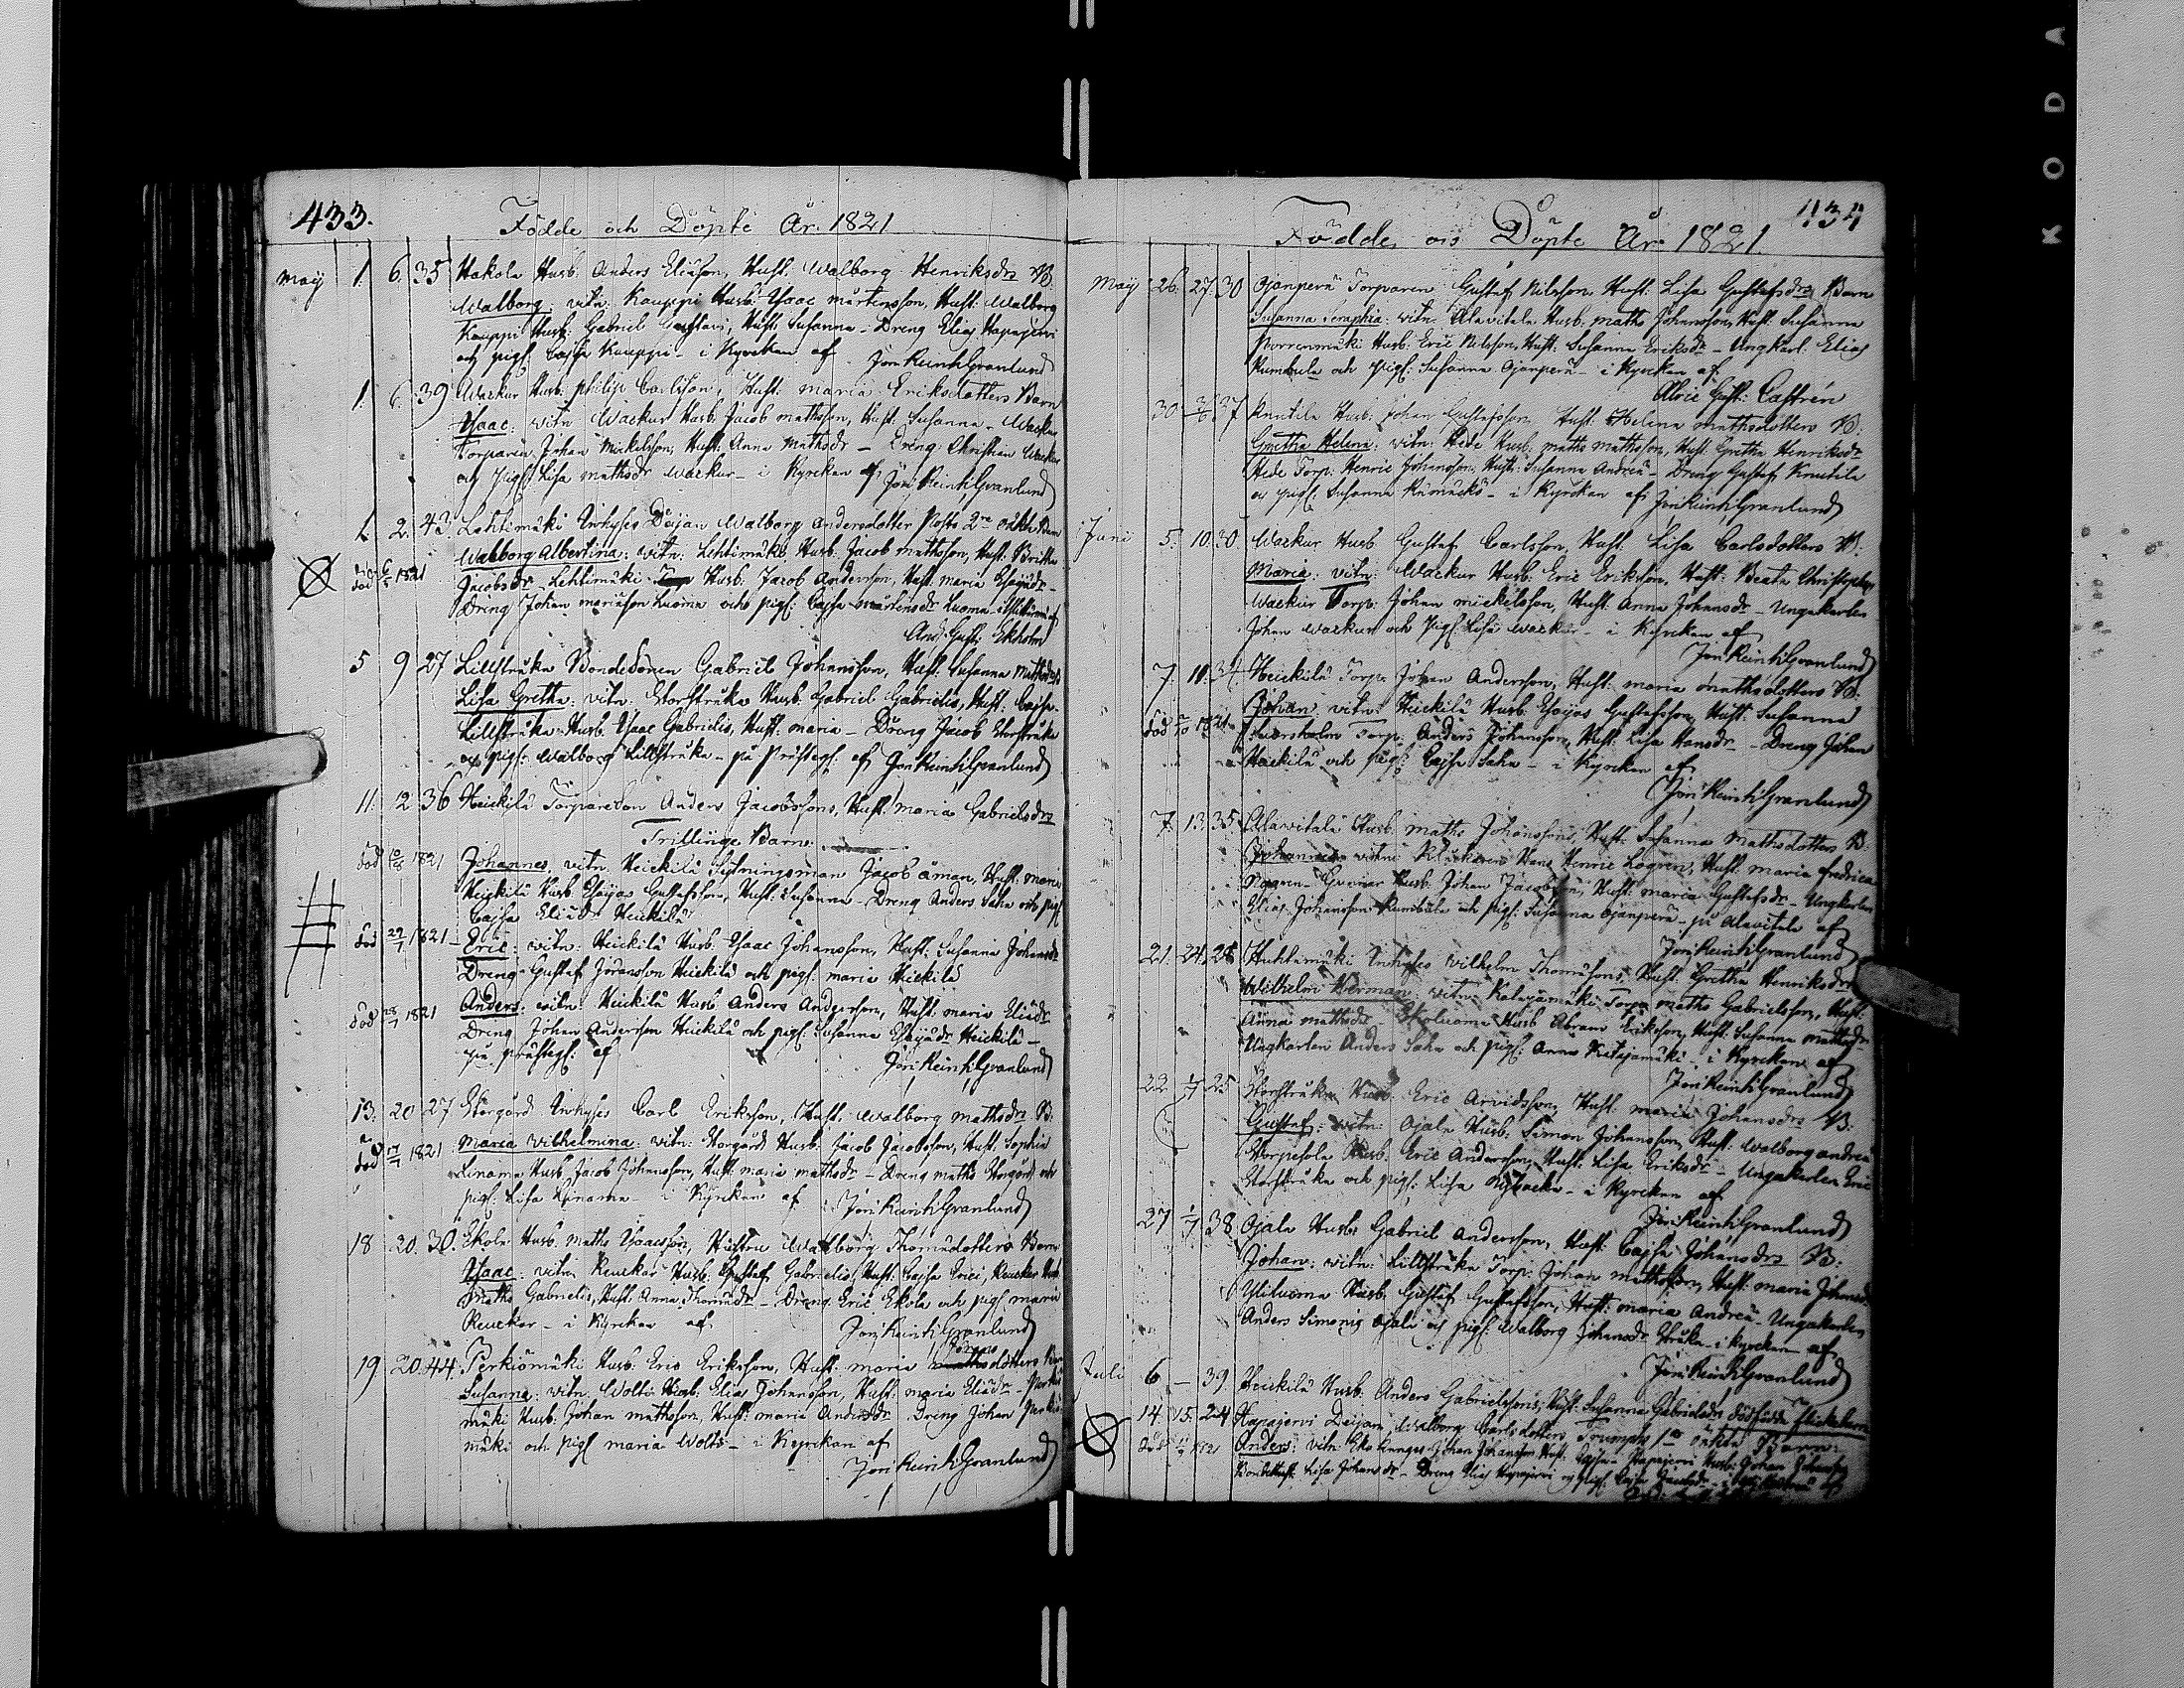 433.
Födde och Döpte År 1821
May 1. 6. 35 Hakola Husb. Anders Eliæson, Hust. Walborg Henriksdr B:
Walborg: vitn: Kauppi Husb: Isaac Mårtensson, Hust: Walborg
Kauppi Husb: Gabriel Gustavi, Hust: Susanna - Dreng Elias Hapajervi
och pig: Cajsa Kauppi - i Kyrckan af Granlund
1. 6. 39 Wackur Husb: Philip Carlsson, Hust: Maria Eriksdotters Barn
Isaac: vitn: Wackur Husb. Jacob Mathsson, Hust: Susanna - Wackur
Torparen Johan Mickelsson, Hust: Anna Mathsdr - Dreng Christian Wackur
och pig: Lisa Mathsdr Wackur - i Kyrckan af Granlund
2. 43. Lehtimäki Inhyses Deijan Walborg Andersdotter 2re oäkta Barn
Walborg Albertina: vitn: Lehtimäki Husb: Jacob Mathsson, Hust: Britha
död 1821 Jacobsdr, Lehtimäki Husb: Jacob Andersson, Hust: Maria
Dreng Johan Luoma och pig: Cajsa Mårtensdr Luoma
And: Gust: Ekholm
5 9 27 Lillstråka Bondesonen Gabriel Johansson, Hust: Susanna
Lisa Gretha: vitn: Storstråka Husb: Gabriel Gabrielis, Hust: Cajsa
Lillstråka Husb: Isaac Gabrielis, Hust: Maria - Dreng Jacob Storstråka
och pig: Walborg Lillstråka - på Prästeg: af Granlund
11. 12 36 Heickilä Torpareson Anders Jacobssons, Hust: Maria Gabrielsdrs
Trillinge Barn:
död 1821 Johannes, vitn: Heickilä Sytningsman Jacob Åman, Hust: Maria
Heickilä Husb: Esaijas Gustafsson, Hust: Susanna - Dreng Anders Saha och pig:
Cajsa Eliædr Heickilä
död 29/7 1821 - Eric: vitn: Heickilä Husb: Isaac Johansson, Hust: Susanna Johansdr
Dreng Gustaf Johansson Heickilä och pig: Maria Heickilä
död 28/7 1821 Anders: vitn: Heickilä Husb Anders Andersson, Hust: Maria Eliædr
Dreng Johan Andersson Heickilä och pig: Susanna Heickilä -
på prästeg: af
Granlund
13. 20 27 Storgård Inhyses Carl Eriksson, Hust: Walborg Mathsdrs B:
död 1821 Maria Wilhelmina: vitn: Storgård Husb: Jacob Jacobsson, Hust: Sophia
Husb: Jacob Johansson, Hust: Maria Mathsdr - Dreng Maths Storgård och
pig: Lisa - i Kyrckan af Granlund
18 20. 30. Ekola Husb: Maths Isacsson, Hustru Walborg Thomædotters Barn
Isaac: vitn: Renckar Husb: Gustaf Gabrielis, Hust: Cajsa Erici, Renckar Husb
Maths Gabrielis, Hust: Anna Thomædr - Dreng Eric Ekola och pig: Maria
Renckar - i Kyrckan af
Granlund
19. 20. 44. Perkiömäki Husb: Eric Eriksson, Hust: Maria dotters
Susanna: vitn: Wolti Husb: Elias Johansson, Hust: Maria Eliædr - Perkiö
mäki Husb: Johan Mathsson, Hust: Maria Andersdr Dreng Johan Perkiö
mäki och pig Maria Wolti - i Kyrckan af
Granlund
434
Födde och Döpte År 1821.
May 26. 27. 30 Ojanperä Torparen Gustaf Nilsson, Hust: Lisa Gustafsdrs Barn
Susanna Seraphia: vitn: Alavitala Husb: Maths Johansson, Hust: Susanna
Porrenmäki Husb: Eric Nilsson, Hust: Susanna Eriksdr - Ungkarl: Elias
Rumbula och pig: Susanna Ojanperä - i Kyrckan af
Gust: Castrén
30 3/6 37 Knutila Husb: Johan Gustafsson Hust: Helena Mathsdotters B:
Gretha Helena: vitn: Hede Husb: Maths Mathsson, Hust: Gretha Henriksdr
Hede Torp: Henric Johansson, Hust: Susanna Andreæ - Dreng Gustaf Knutila
och pig: Susanna - i Kyrckan af Granlund
Juni 5. 10. 30. Wackur Husb Gustaf Carlsson, Hust: Lisa Carlsdotters B:
Maria: vitn: Wackur Husb: Eric Eriksson, Hust: Beata
Wackur Torp: Johan Mickelsson, Hust: Anna Johansdr - Ungakarlen
Johan Wackur och pig: Lisa Wackur - i Kyrckan af
Granlund
7. 10. Heickilä Torp: Johan Andersson, Hust: Maria Mathsdotters B:
Johan: vitn: Heickilä Husb: Esaijas Gustafsson, Hust: Susanna
död 1821 Torp: Anders Johansson, Hust: Lisa Hansdr - Dreng Johan
Heickilä och pig: Cajsa Saha - i Kyrckan af
Granlund
7. 13. 35 Alavitala Husb: Maths Johanssons, Hust: Susanna Mathsdotters B:
Johannes: vitn: Klockaren Hans Henric Logren, Hust: Maria Fredrica
Husb: Johan Jacobsson, Hust: Maria Gustafsdr - Ungkarlen
Elias Johansson Rumbula och pig: Susanna Ojanperä - på Alavitala af
Granlund
21. 24. 28 Huhtamäki Inhyses Wilhelm Thomæsons, Hust: Gretha Henriksdrs
Wilhelm Herman: vitn: Katajamäki Torp: Maths Gabrielsson, Hust:
Anna Mathsdr - Ekoluoma Husb Abram Eriksson, Hust: Susanna Mathsdr
Ungkarlen Anders Saha och pig: Anna Katajamäki - i Kyrckan af
Granlund
22. 1/7 25 Storstråka Husb: Eric Arvidsson, Hust: Maria Johansdrs B:
Gustaf: vitn: Ojala Husb: Simon Johansson, Hust: Walborg Andreæ
Husb: Eric Andersson, Hust: Lisa Eriksdr - Ungakarlen Eric
Storstråka och pig: Lisa - i Kyrckan af
Granlund
27 1/7 38 Ojala Husb: Gabriel Andersson, Hust: Cajsa Johansdrs B:
Johan: vitn: Lillstråka Torp: Johan Mathsson, Hust: Maria Johansdr
Yliluoma Husb: Gustaf Gustafsson, Hust: Maria Andreæ - Ungakarlen
Anders Simonis Ojala och pig: Walborg Johansdr Stråka - i Kyrckan af
Granlund
Juli 6 - 39. Heickilä Husb: Anders Gabrielssons, Hust: Susanna Gabrielsdrs dödfödde flickebarn
14. 15. 24 Hapajervi Deijan Walborg Carlsdotters 1sta oäkta Barn:
död 1821 Anders: vitn: Johan Johansson Hust: Cajsa - Hapajervi Husb: Johan
Lisa Johansdr - Dreng Elias Hapajervi och pig: Cajsa
KODA